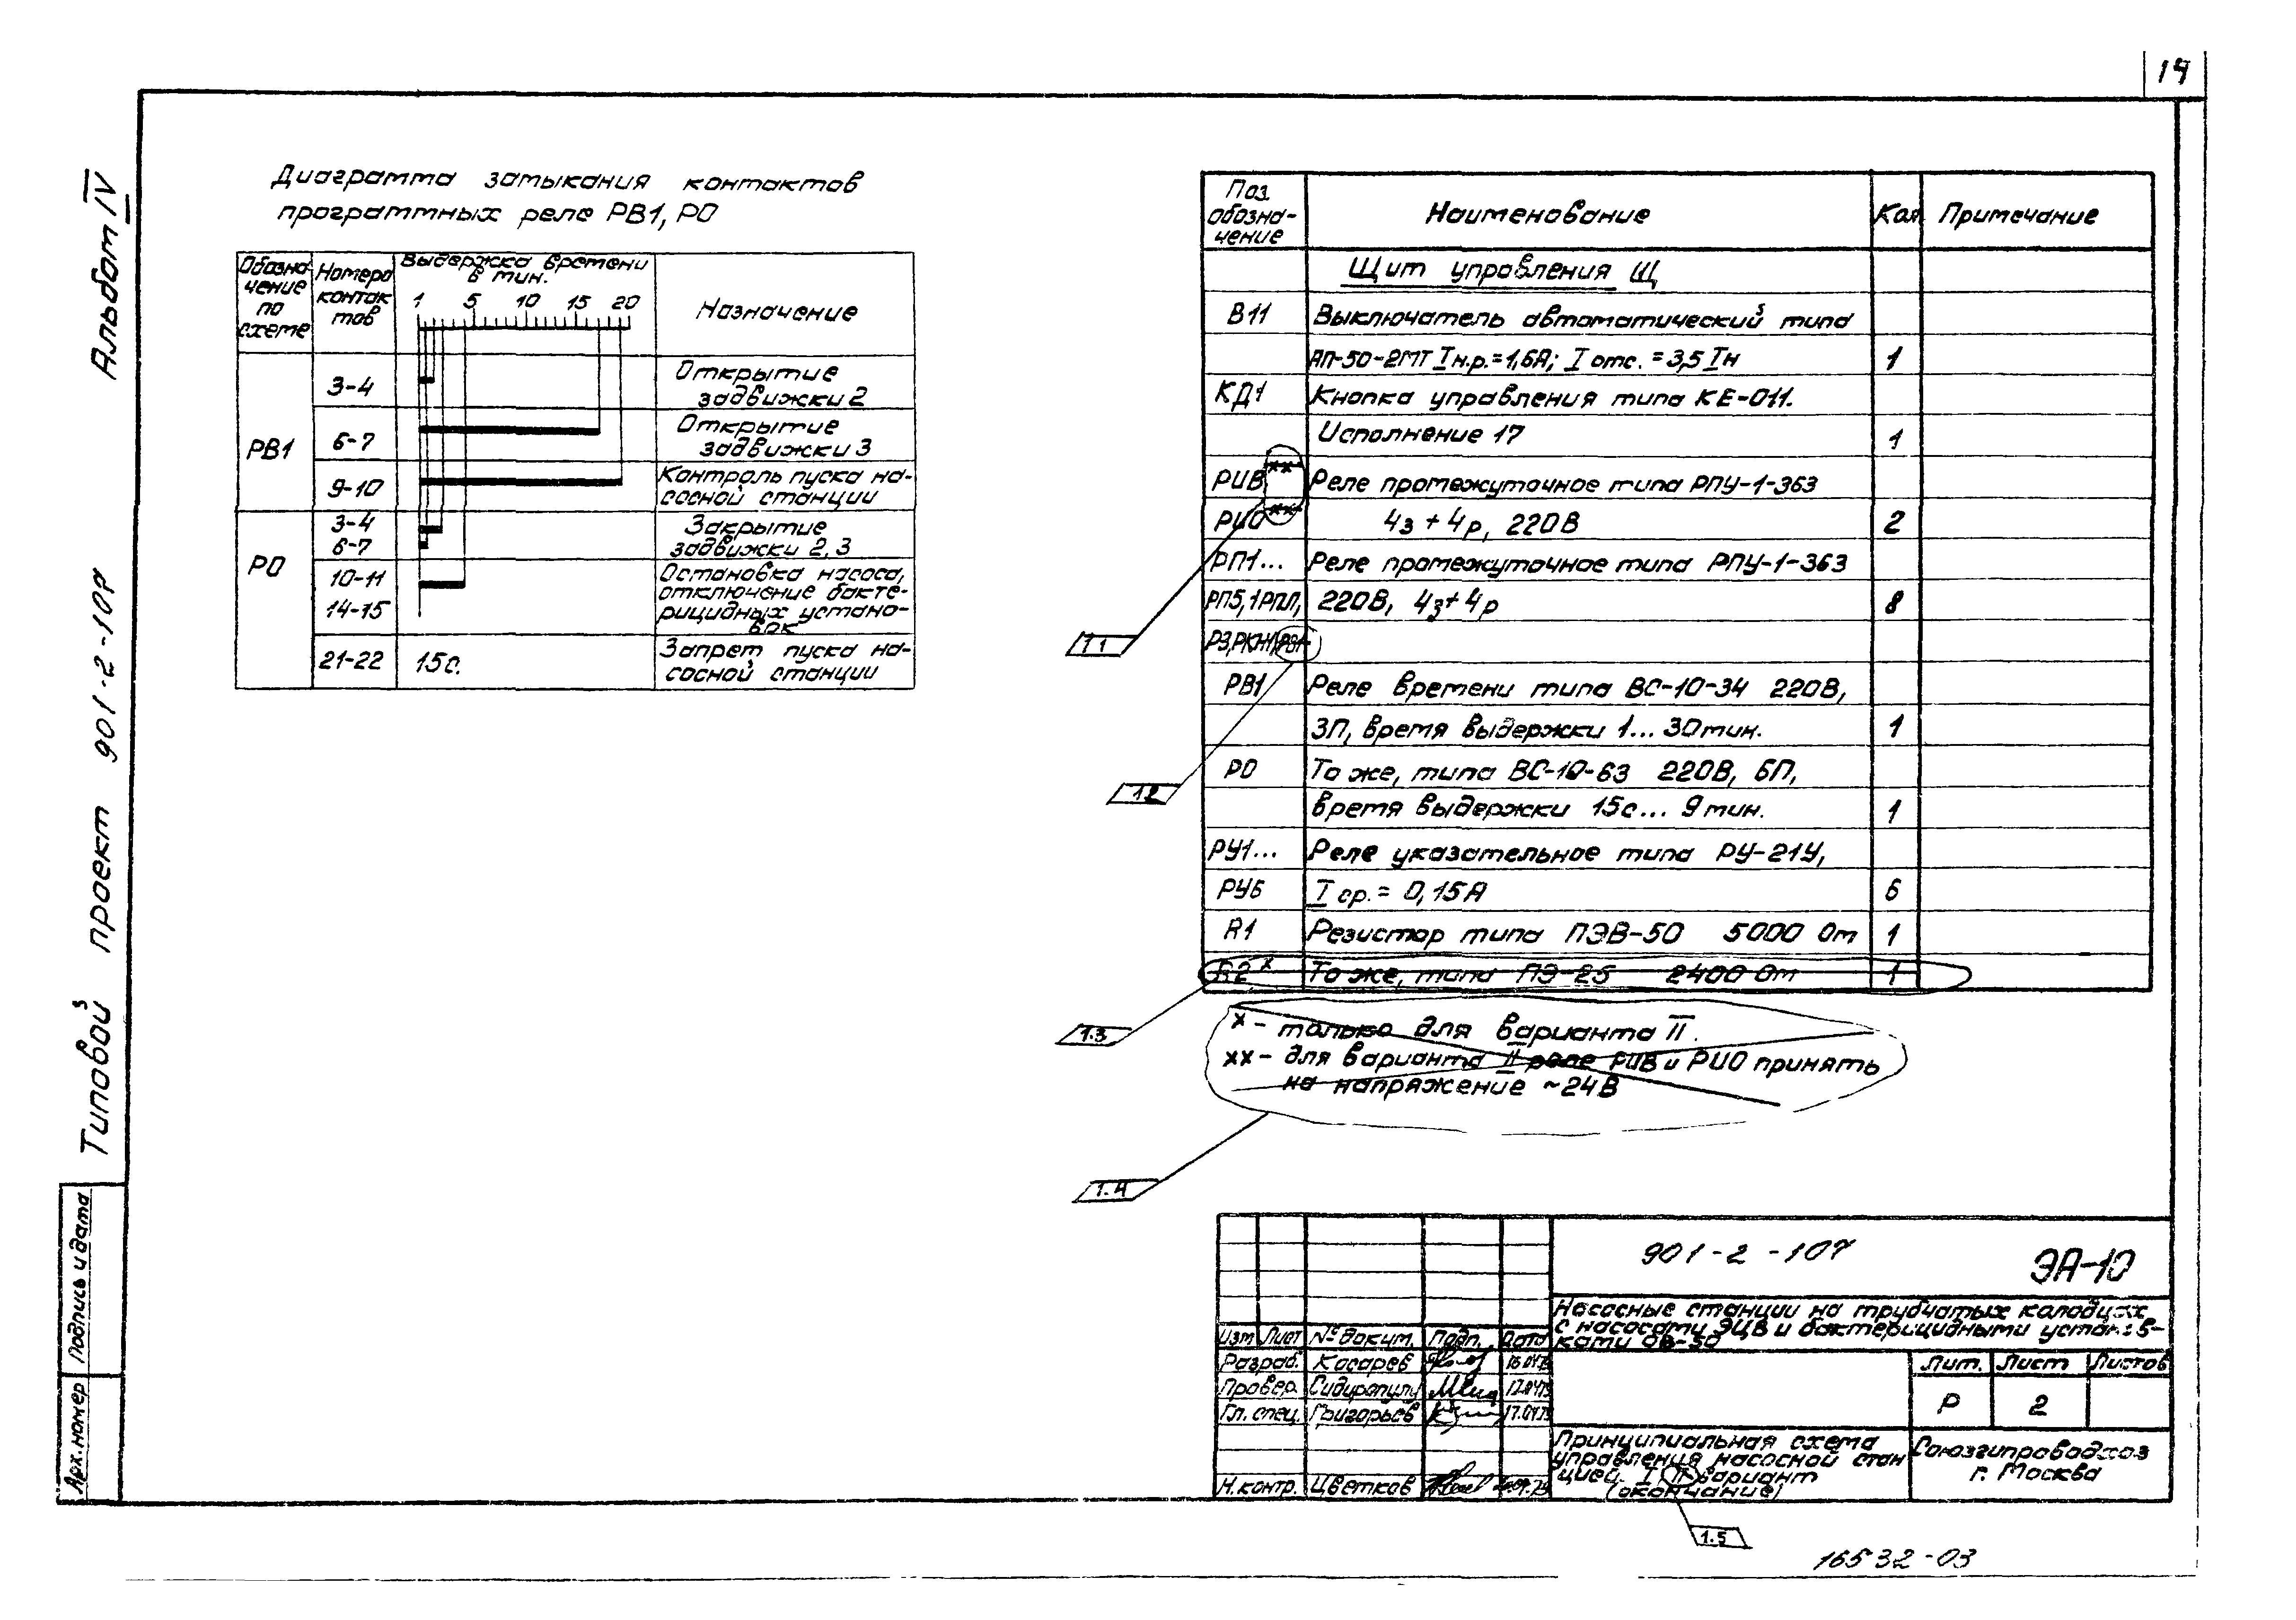 14
Альбом IV
Типовой проект 901-2-107
Подпись и дата
Арх. номер
Диаграмма замыкания контактов
программных реле РВ1, РО
Обозна-
чение
по
схеме
Номера
контак
тов
Выдержка времени
в мин.
1 5 10 15 20
Назначение
РВ1
3-4
Открытие
задвижки 2
6-7
Открытие
задвижки 3
9-10
Контроль пуска на-
сосной станции
РО
3-4
6-7
Закрытие
задвижки 2,3
10-11
14-15
Остановка насоса,
отключение бакте-
рицидных устано-
вок
21-22
15с.
Запрет пуска на-
сосной станции
Поз.
обозна-
чение
Наименование
Кол
Примечание
Щит управления Щ
В11 Выключатель автоматический типа
АП-50-2МТ Iн.р.=1,6А; I отс.=3,5 Iн 1
КД1 Кнопка управления типа КЕ-011.
Исполнение 17 1
РИВ xx Реле промежуточное типа РПУ-1-363
РИО xx 4з+4р, 220В 2
РП1... Реле промежуточное типа РПУ-1-363
РП5, 1РПЛ, 220В, 4з+4р 8
РЗ, РКН1,
РВ1 Реле времени типа ВС-10-34 220В,
3П, время выдержки 1...30мин. 1
РО То же, типа ВС-10-63 220В, 6П,
время выдержки 15с... 9мин. 1
РУ1... Реле указательное типа РУ-21У,
РУ6 I ср.= 0,15А 6
R1 Резистор типа ПЭВ-50 5000 Ом 1
R2 x То же, типа ПЭ-25 2400 Ом 1
x - только для варианта II.
xx - для варианта II реле РИВ и РИО принять
на напряжение ~24В
1.1
1.2
1.3
1.4
901-2-107
ЭА-10
Насосные станции на трубчатых колодцах
с насосами ЭЦВ и бактерицидными установ-
ками ОВ-50
Изм Лист № докум. Подп. Дата
Разраб. Косарев
Провер. Сидиропулу
Гл. спец. Григорьев
Н.контр. Цветков
Лит. Лист Листов
Р 2
Принципиальная схема
управления насосной стан
цией I, II вариант
(окончание)
Союзгипроводхоз
г. Москва
1.5
16532-03